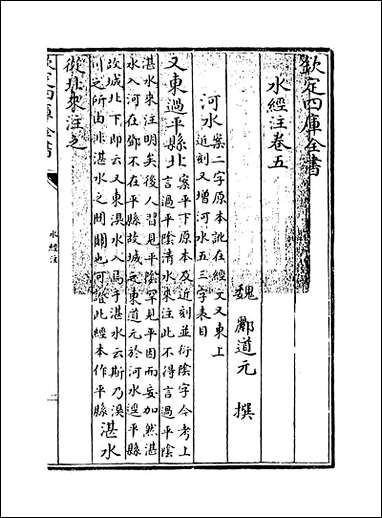 欽定四庫全書
水經注卷五
魏 酈道元 撰
河水 案二字原本訛在經文又東上
近刻又增河水五三字表目
又東過平縣北 案平下原本及近刻並衍陰字今考上
言過平陰清水來注此不得言過平陰
湛水來注明矣後人習見平陰罕見平因而妄加然湛
水入河在鄧不在平縣故城元東道元於河水逕平縣
故城北下即云又東溴水入焉于湛水云斯乃溴
川之所由非湛水之間關也可證此經本作平縣 湛水
從北來注之
欽定四庫全書
水經注